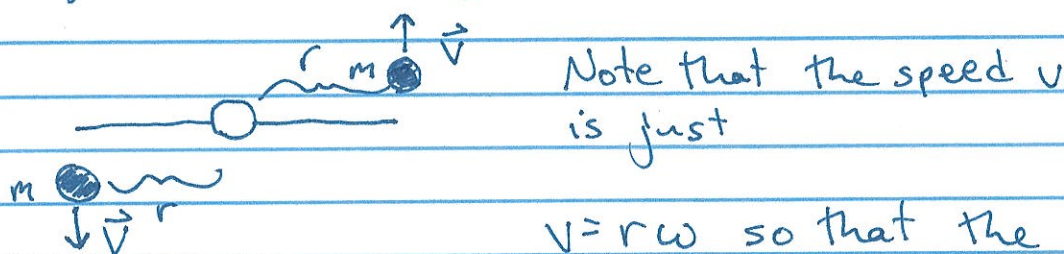 r m V⃗ Note that the speed v
is just
m r
V⃗ v = rω so that the